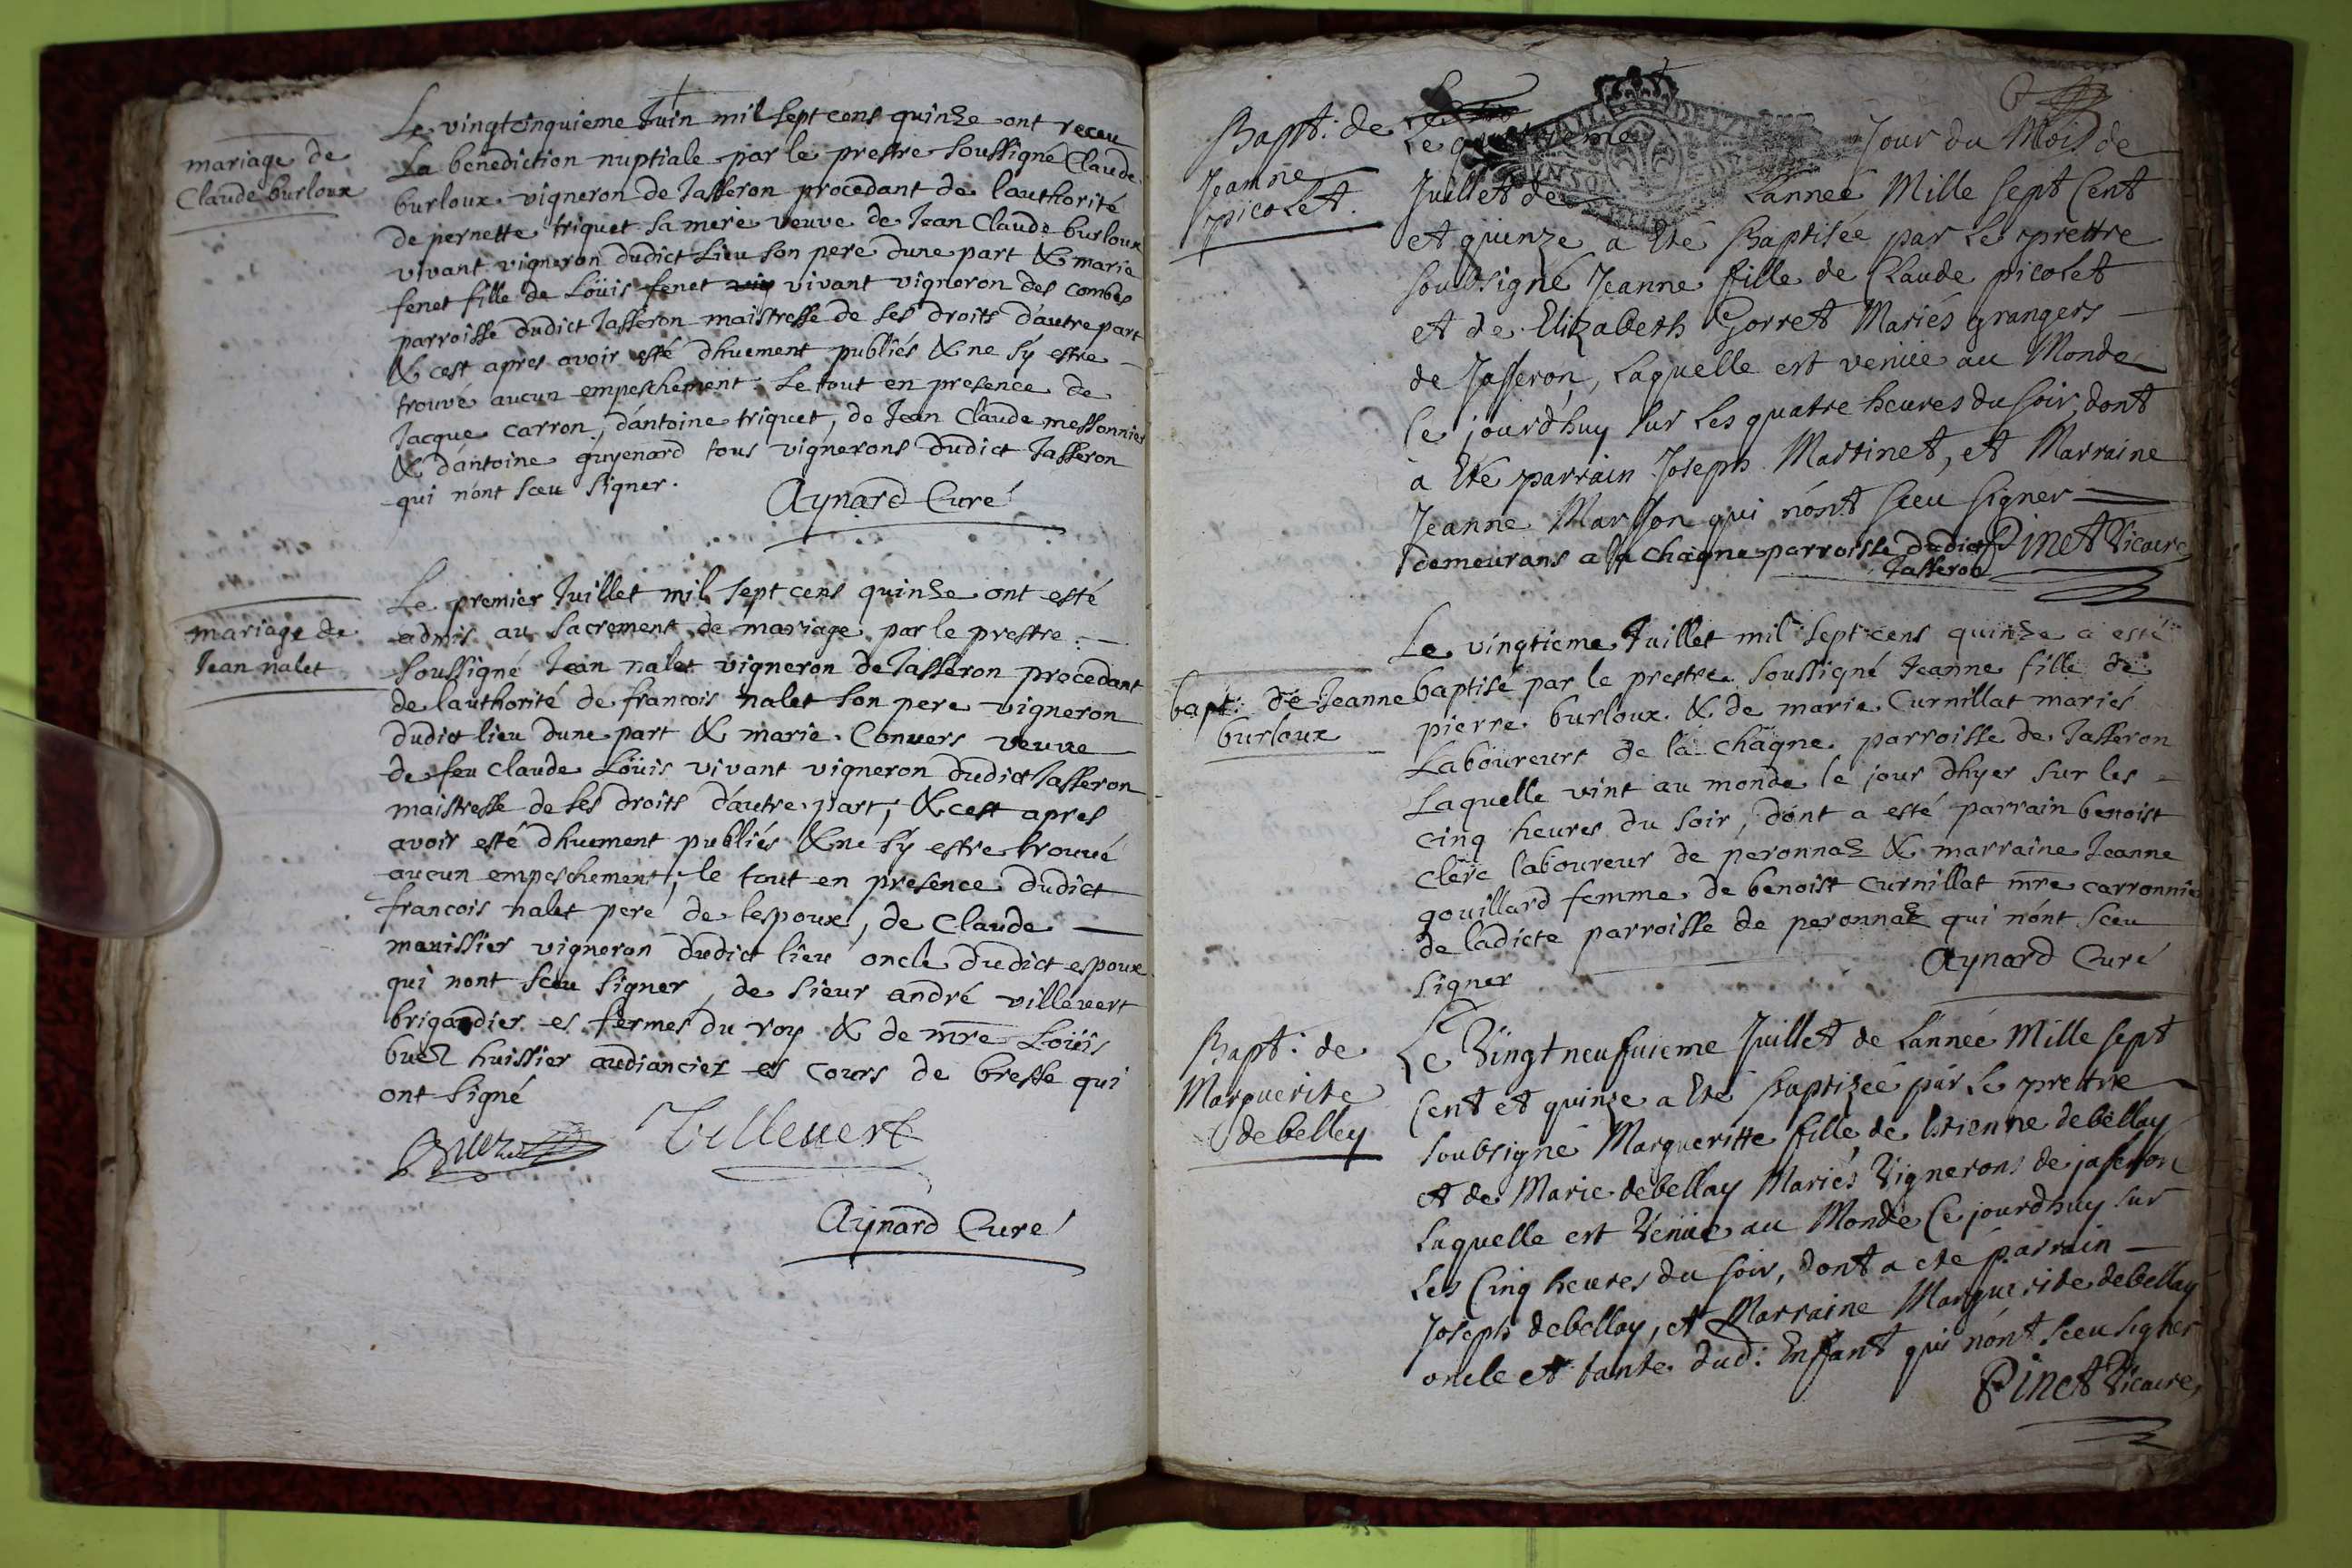 mariage de
Claude burloux
Le vingtcinquieme Juin mil sept cens quinze ont receu
La benediction nuptiale par le prestre soussigné Claude
burloux vigneron de Jasseron procedant de lauthorité
de pernette triquet sa mere veuve de Jean Claude burloux
vivant vigneron dudict Lieu son pere dune part & marie
fenet fille de Loüis fenet vivant vigneron des combes
parroisse dudict Jasseron maistresse de ses droits d'autre part
& cest apres avoir esté dhuement publiés & ne sÿ estre
trouvé aucun empeschement. Le tout en presence de
Jacque carron, d'antoine triquet, de Jean Claude messonnier
& d'antoine guyenard tous vignerons dudict Jasseron
qui n'ont sceu signer.
Aynard Curé
mariage de
Jean nalet
Le premier Juillet mil sept cens quinze ont esté
admis au sacrement de mariage par le prestre
soussigné Jean nalet vigneron de Jasseron procedant
de lauthorité de francois nalet son pere vigneron
dudict lieu dune part & marie Convers veuve
de feu claude Loüis vivant vigneron dudict Jasseron
maistresse de ses droits d'autre part, & cest apres
avoir esté dhuement publiés & ne sÿ estre trouvé
aucun empeschement, le tout en presence dudict
francois nalet pere de lespoux, de Claude
manissier vigneron dudict lieu oncle dudict espoux
qui nont sceu signer, de sieur andré villevert
brigandier es fermes du roy & de mre Loüis
buez huissier audiancier es cours de bresse qui
ont signé
Buez Villevert
Aynard Curé
Bapt: de
Jeanne
picolet.
Le quatrieme Jour du Mois de
Juillet de Lannée Mille sept Cent
et quinze a Eté Baptisée par Le prettre
soubsigné Jeanne fille de Claude picolet
et de Elizabeth Gorret Mariés grangers
de Jasseron, Laquelle est venüe au Monde
Ce jourd'huy sur Les quatre heures du soir, dont
a Eté parrain Joseph Martinet, et Marraine
Jeanne Marsson qui n'ont sceu signer
demeurans a la chagne parroisse dudict
Jasseron
Pinet Vicaire
bapt: de Jeanne
burloux
Le vingtieme Juillet mil sept cens quinze a esté
baptisé par le prestre soussigné Jeanne fille de
pierre burloux & de marie Curnillat mariés
Laboureurs de la chagne parroisse de Jasseron
Laquelle vint au monde le jour dhyer sur les
cinq heures du soir, dont a esté parrain benoist
clerc laboureur de peronnaz & marraine Jeanne
gouillard femme de benoist curnillat mre carronnier
de ladicte parroisse de peronnaz qui n'ont sceu
signer
Aynard Curé
Bapt: de
Marguerite
debelley
Le Vingt neufuieme Juillet de Lannée Mille sept
Cent et quinze a Eté Baptizée par Le prettre
soubsigné Margueritte fille de Estienne debellay
et de Marie debellay Mariés Vignerons de jasseron
Laquelle est Venüe au Monde Ce jourdhuy sur
Les Cinq heures du soir, dont a eté parrain
Joseph debellay, et Marraine Marguerite debellay
oncle et tante dud: Enffant qui n'ont sceu signer
Pinet Vicaire